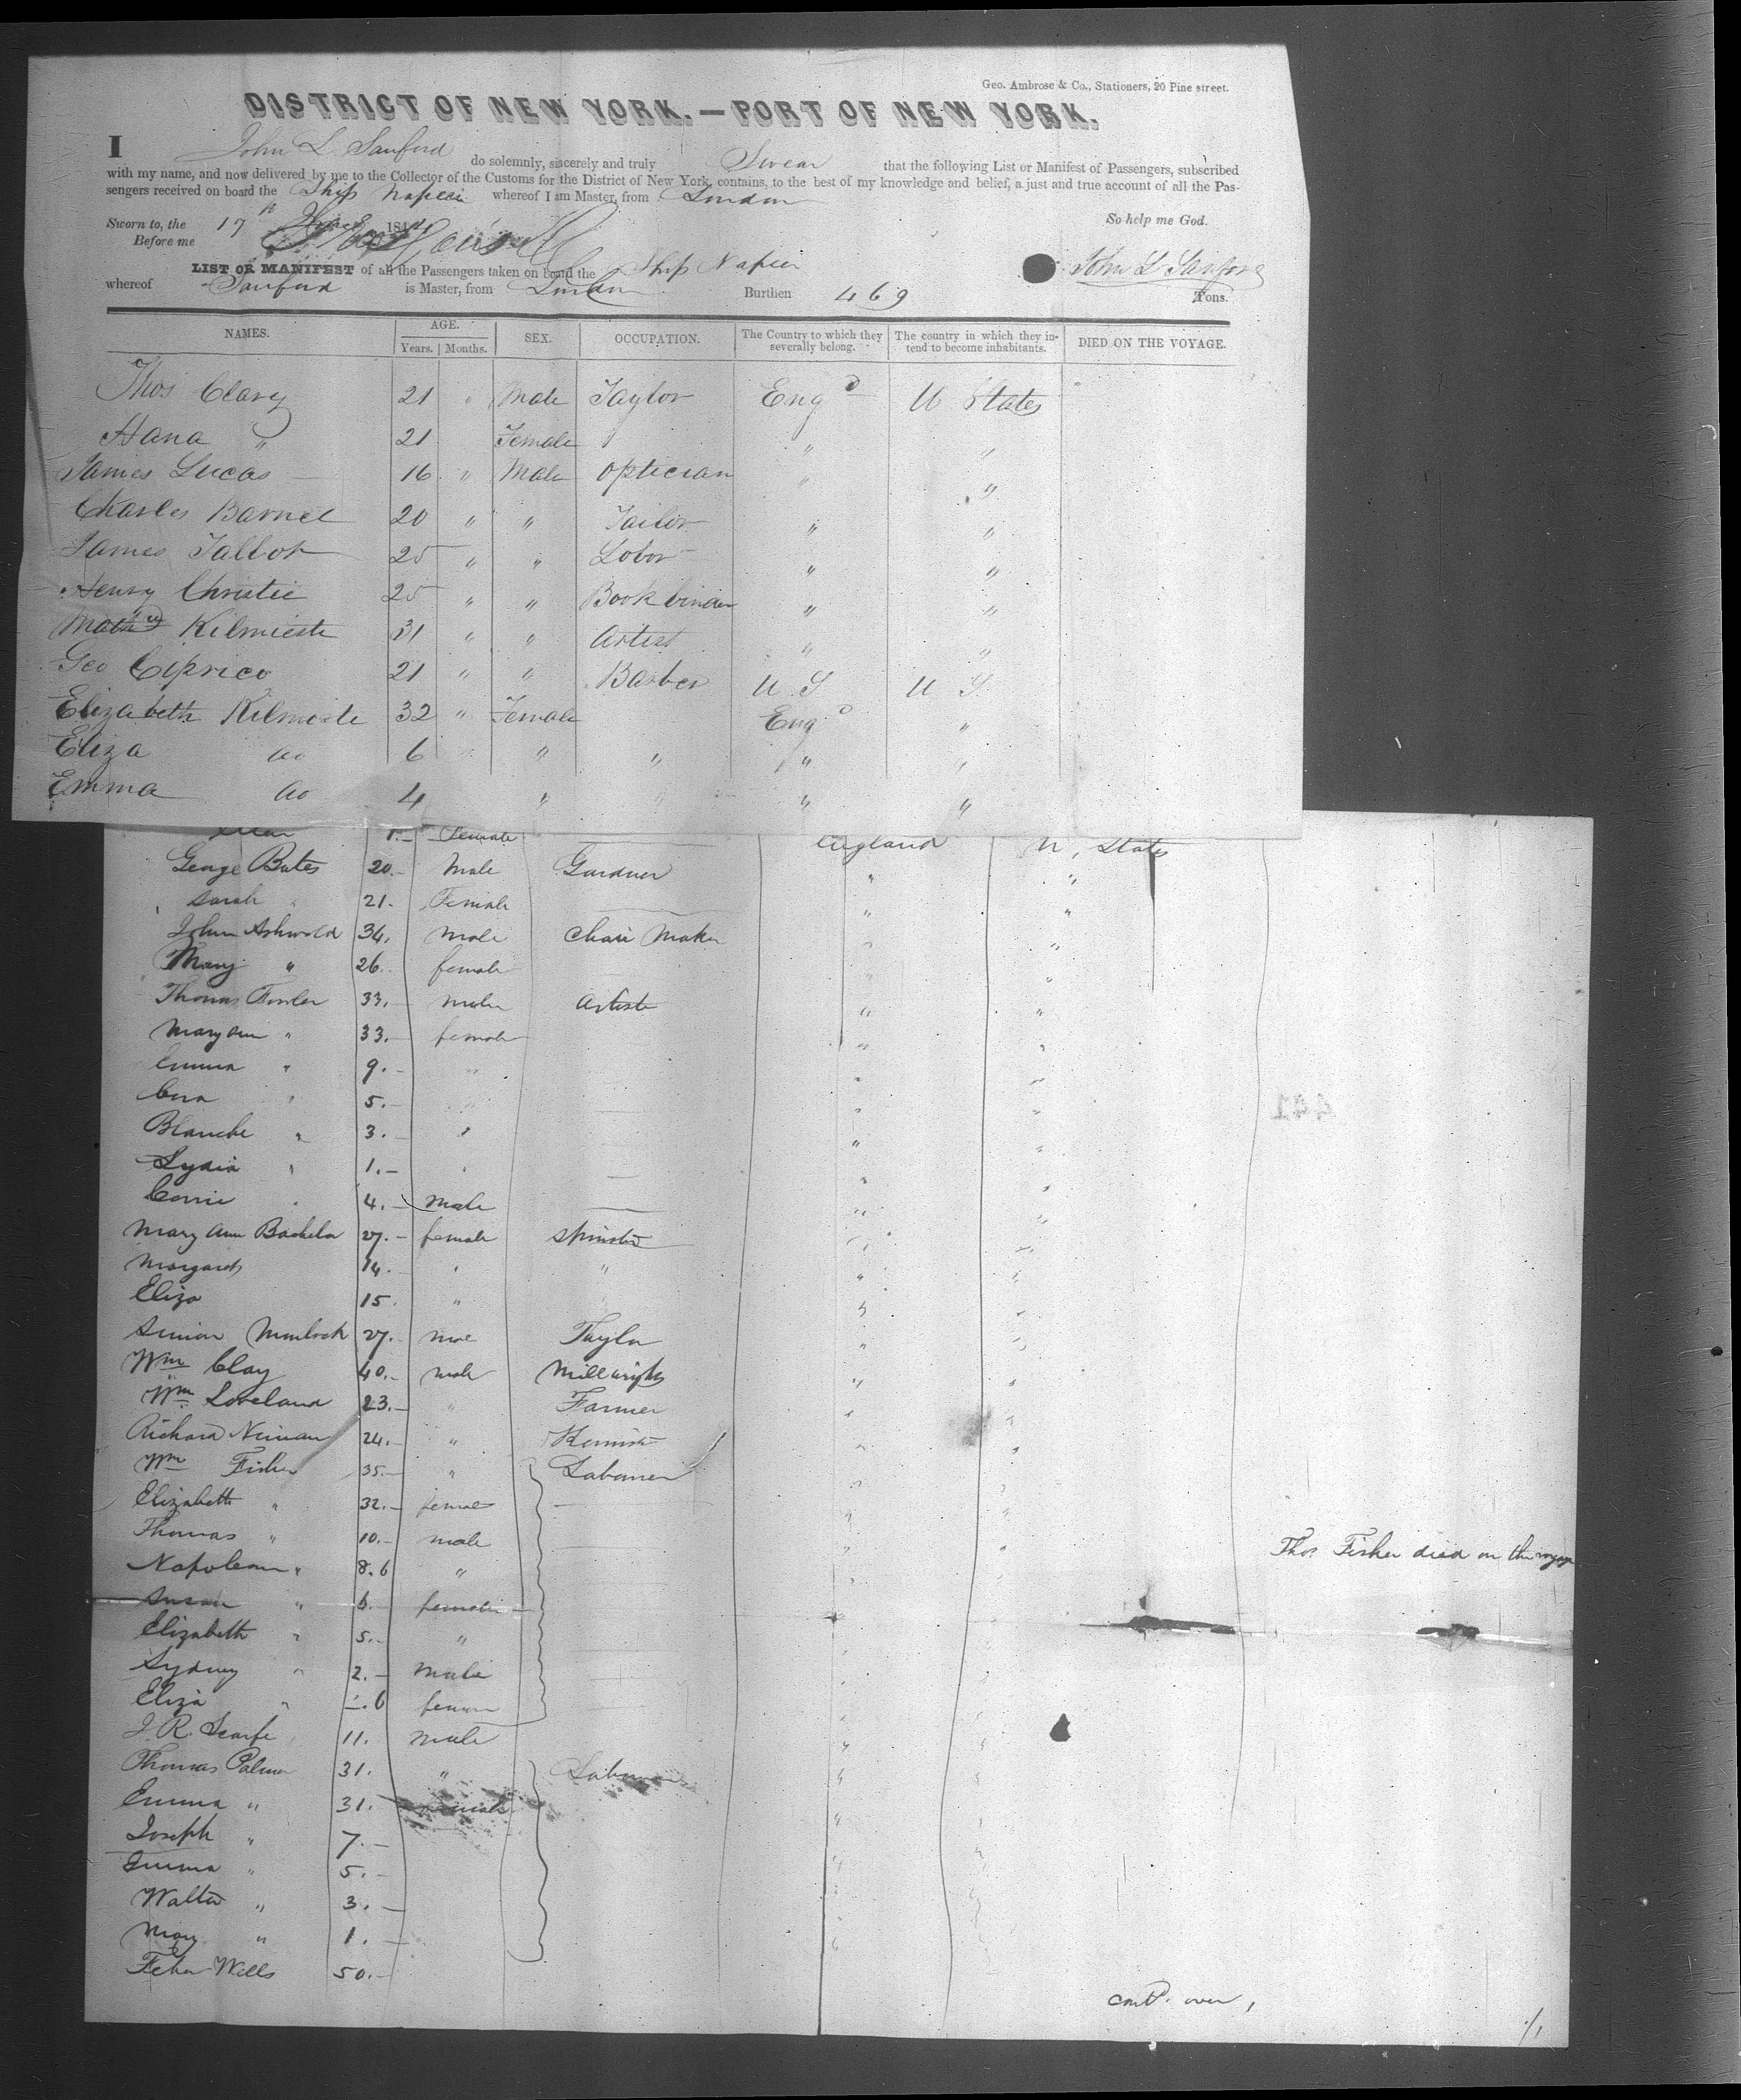 Geo. Ambrose & Co., Stationers, 20 Pine street.
DISTRICT OF NEW YORK.—PORT OF NEW YORK.
I John L Sanford do solemnly, sincerely and truly Swear that the following List or Manifest of Passengers, subscribed
with my name, and now delivered by me to the Collector of the Customs for the District of New York, contains, to the best of my knowledge and belief, a just and true account of all the Pas-
sengers received on board the Ship Napier whereof I am Master, from London
Sworn to, the 17th 184 So help me God.
Before me
LIST OR MANIFEST of all the Passengers taken on board the Ship Napier John L Sanford
whereof Sanford is Master, from London Burthen 469 Tons.
NAMES. AGE. Years. Months. SEX. OCCUPATION. The Country to which they severally belong. The country in which they intend to become inhabitants. DIED ON THE VOYAGE.
Thos Clary 21 " Male Taylor Engd U States
Hana " 21 Female " "
James Lucas 16 " Male Optician " "
Charles Barnet 20 " " Tailor " "
James Talbot 25 " " Lobor " "
Henry Christie 25 " " Book binder " "
Kilmiste 31 " " Artist " "
Geo Ciprico 21 " " Barber U S U S
Elizabeth Kilmiste 32 " Female Engd "
Eliza do 6 " " " "
Emma do 4 " " " "
Female England U, States
George Bates 20.- Male Gardner " "
Sarah " 21.- Female " "
John Ashwold 34. Male Chair Maker " "
Mary " 26. female " "
Thomas Fowler 33.- male Artiste " "
Mary Ann " 33.- female " "
Emma " 9.- " " "
5.- " " "
Blanche " 3.- " " "
Lydia " 1.- " " "
4.- Male " "
Mary Ann Bachelor 27.- female Spinster " "
Margaret 14.- " " " "
Eliza 15. " " "
Simion Murlock 27.- mae Taylor " "
Wm Clay 40.- male Millwright " "
Wm Loveland 23.- " Farmer " "
Richard 24.- " Kemist " "
Wm Fisher 35.- " Labourer " "
Elizabeth " 32.- female " "
Thomas " 10.- male " " Thos Fisher died on the voyage
Napolean " 8.6 " " "
Susan " 6.- female " "
Elizabeth " 5.- " " "
Sydney " 2.- Male " "
Eliza " -.6 female " "
J. R. Scarfe 11. male " "
Thomas Palmer 31. " Labourer " "
Emma " 31. female " "
Joseph " 7.- " "
Emma " 5.- " "
Walter " 3.- " "
Mary " 1.- " "
Wells 50.-
contd. over,